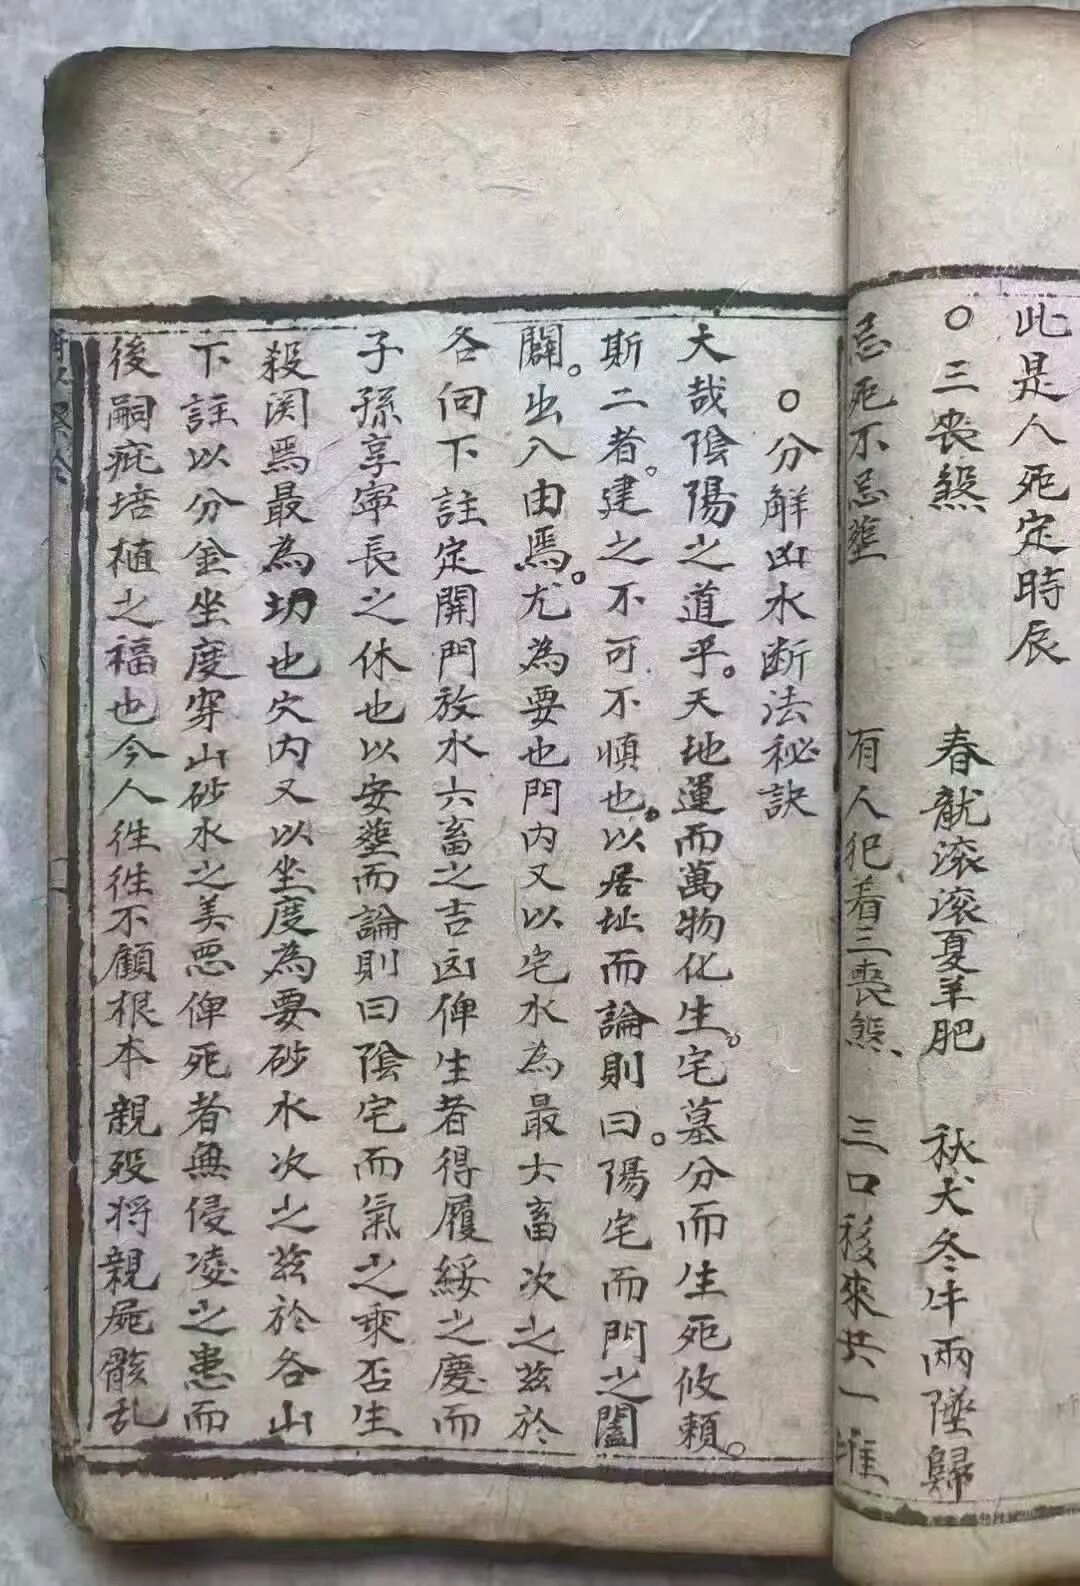 此是人死定時辰
○三喪煞 春龍滾滾夏羊肥 秋犬冬牛兩墜歸
忌死不忌塟 有人犯着三喪煞 三口移來共一堆
○分解凶水断法秘訣
大哉陰陽之道乎。天地運而萬物化生。宅墓分而生死攸賴。
斯二者。建之不可不慎也。以居址而論則曰。陽宅而門之闔
闢。出入由焉。尤為要也門内又以宅水為最六畜次之茲於
各向下註定開門放水六畜之吉凶俾生者得履綏之慶而
子孫享寧長之休也以安塟而論則曰陰宅而氣之乘否生
殺関焉最為切也穴内又以坐度為要砂水次之茲於各山
下註以分金坐度穿山砂水之美惡俾死者無侵凌之患而
後嗣疵培植之福也今人徃徃不顧根本親歿将親屍骸乱